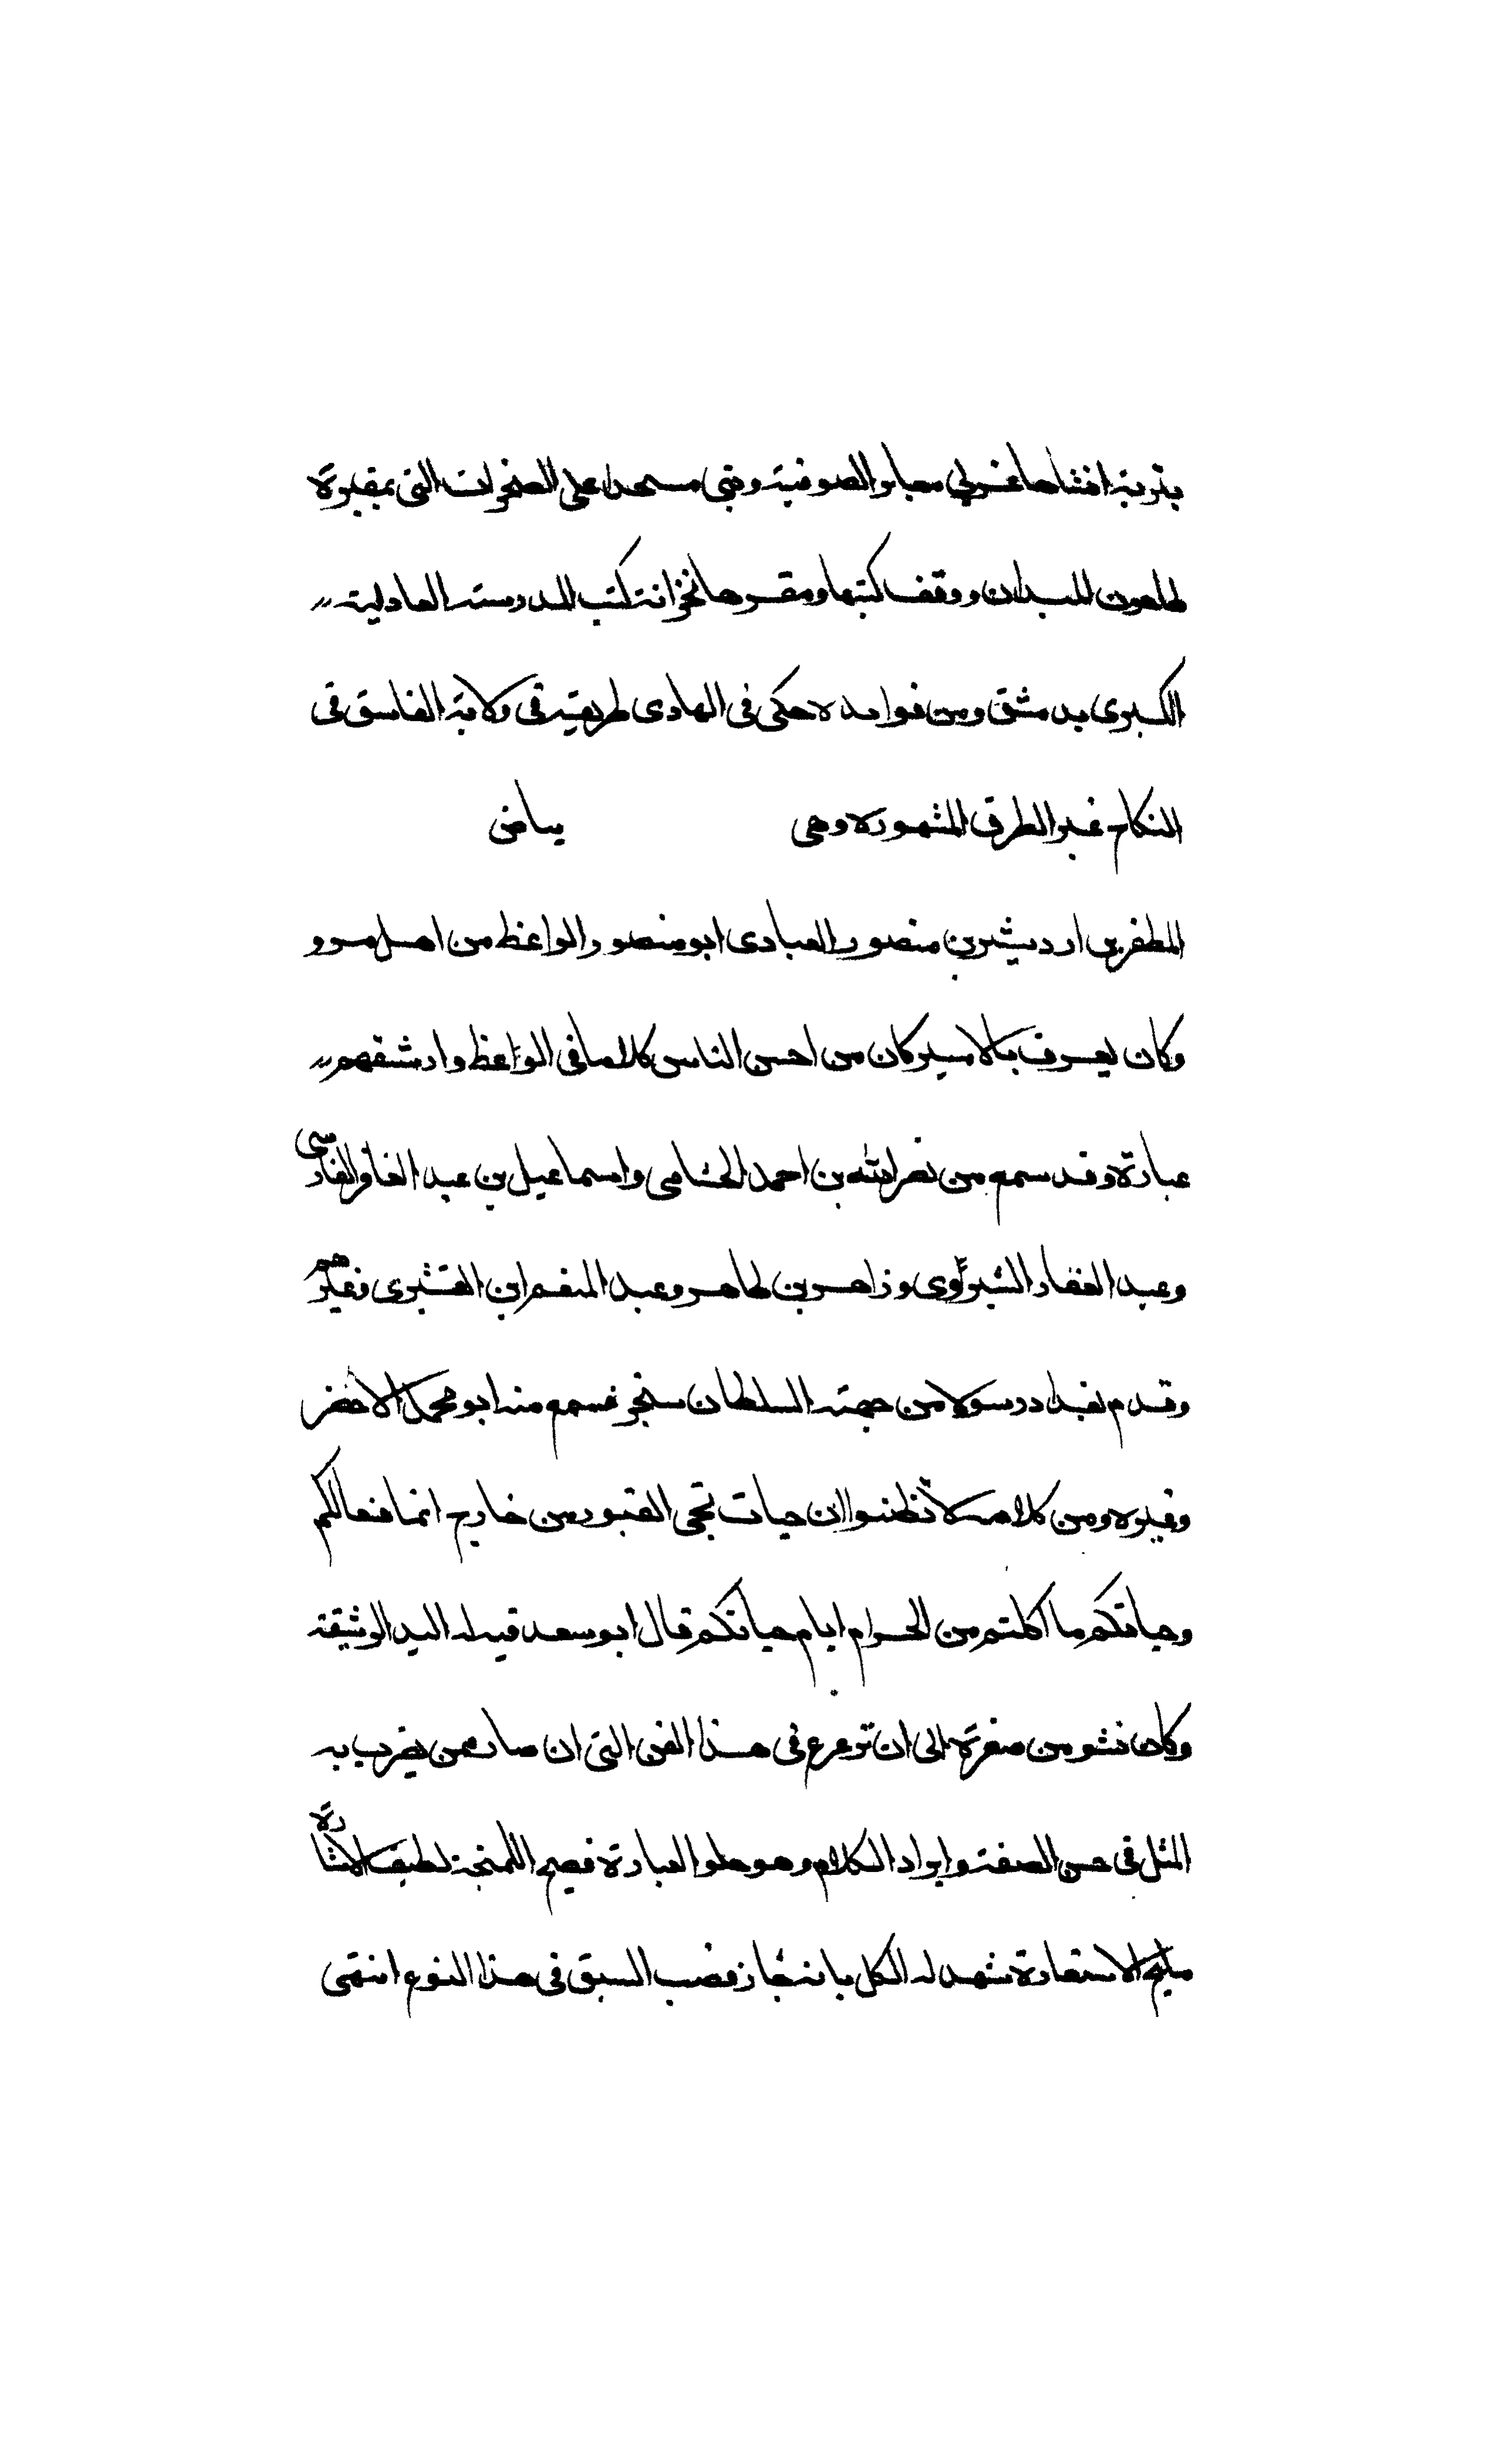 بتربة انشاها غربي مقابر الصوفية وبنى مسجدا على الصخرات التي بمقبرة
طاحون الميدان ووقف كتبها ومقرها بخزانة كتب المدرسة العادلية
الكبرى بدمشق ومن فوائده حكى في الهادى طريقة في ولاية الفاسق في
النكاح غير الطرق المشهورة وهي بياض
المظفر بن اردشير بن منصور العبادى ابو منصور الواعظ من اهل مرو
وكان يعرف بالامير كان من احسن الناس كلاما في الواعظ وارشقهم
عبارة وقد سمع من نصر الله بن احمد الخشامى واسماعيل بن عبد الغافر الفارسى
وعبد الغفار الشيروى وزاهر بن طاهر وعبد المنعم ابن القشيرى وغيرهم
وقدم بغداد رسولا من جهة السلطان سنجر فسمع منه ابو محمد الاخضر
وغيره ومن كلامه لا تظنوا ان حيات تجى القبور من خارج انما فعالكم
وحياتكم ما اكلتم من الحرام ايام حياتكم قال ابو سعد قيل له اليد الوثيقة
وكان نشو من صغره الى ان ترعرع في هذا الفن التي ان صار ممن يضرب به
المثل في حسن الصنعة وايراد الكلام وهو حلو العبارة فصيح اللمنجة لطيف الاشارة
مليح الاستعارة شهد له الكل بانه حاز قصب السبق في هذا النوع انتهى